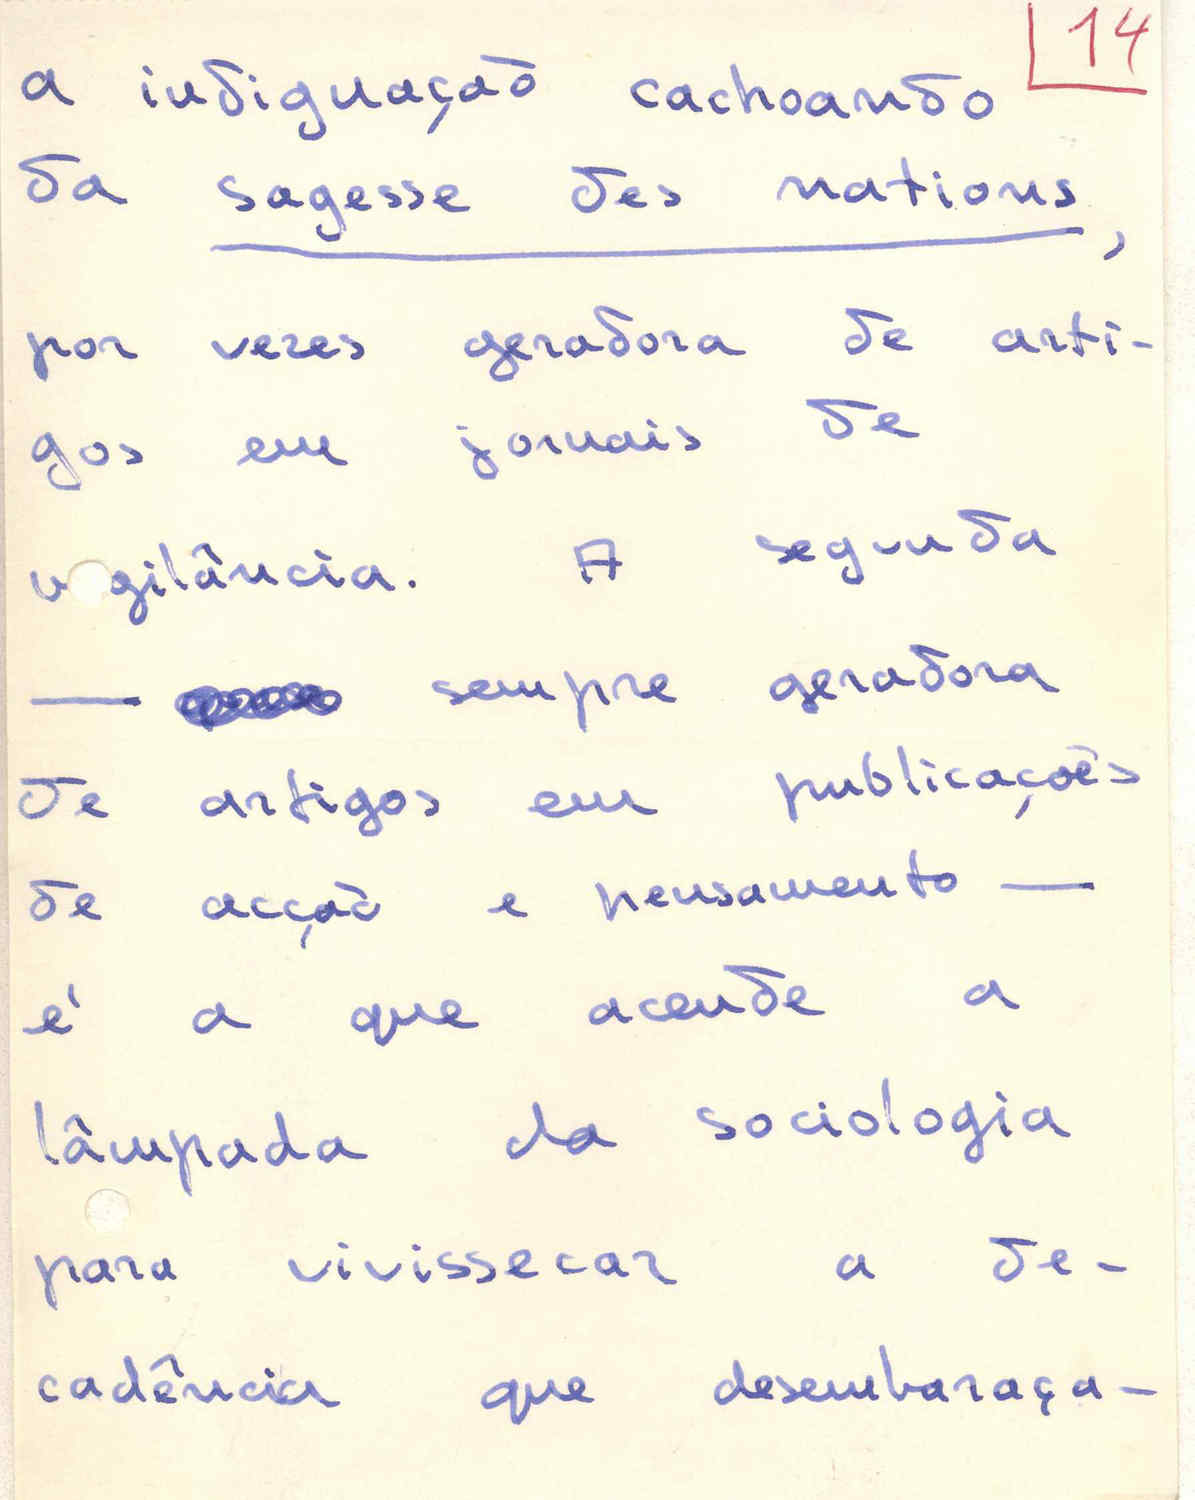 14
a indignação cachoando
da sagesse des nations,
por vezes geradora de arti-
gos em jornais de
vigilância. A segunda
— sempre geradora
de artigos em publicações
de acção e pensamento —
é a que acende a
lâmpada da sociologia
para vivissecar a de-
cadência que desembaraça-